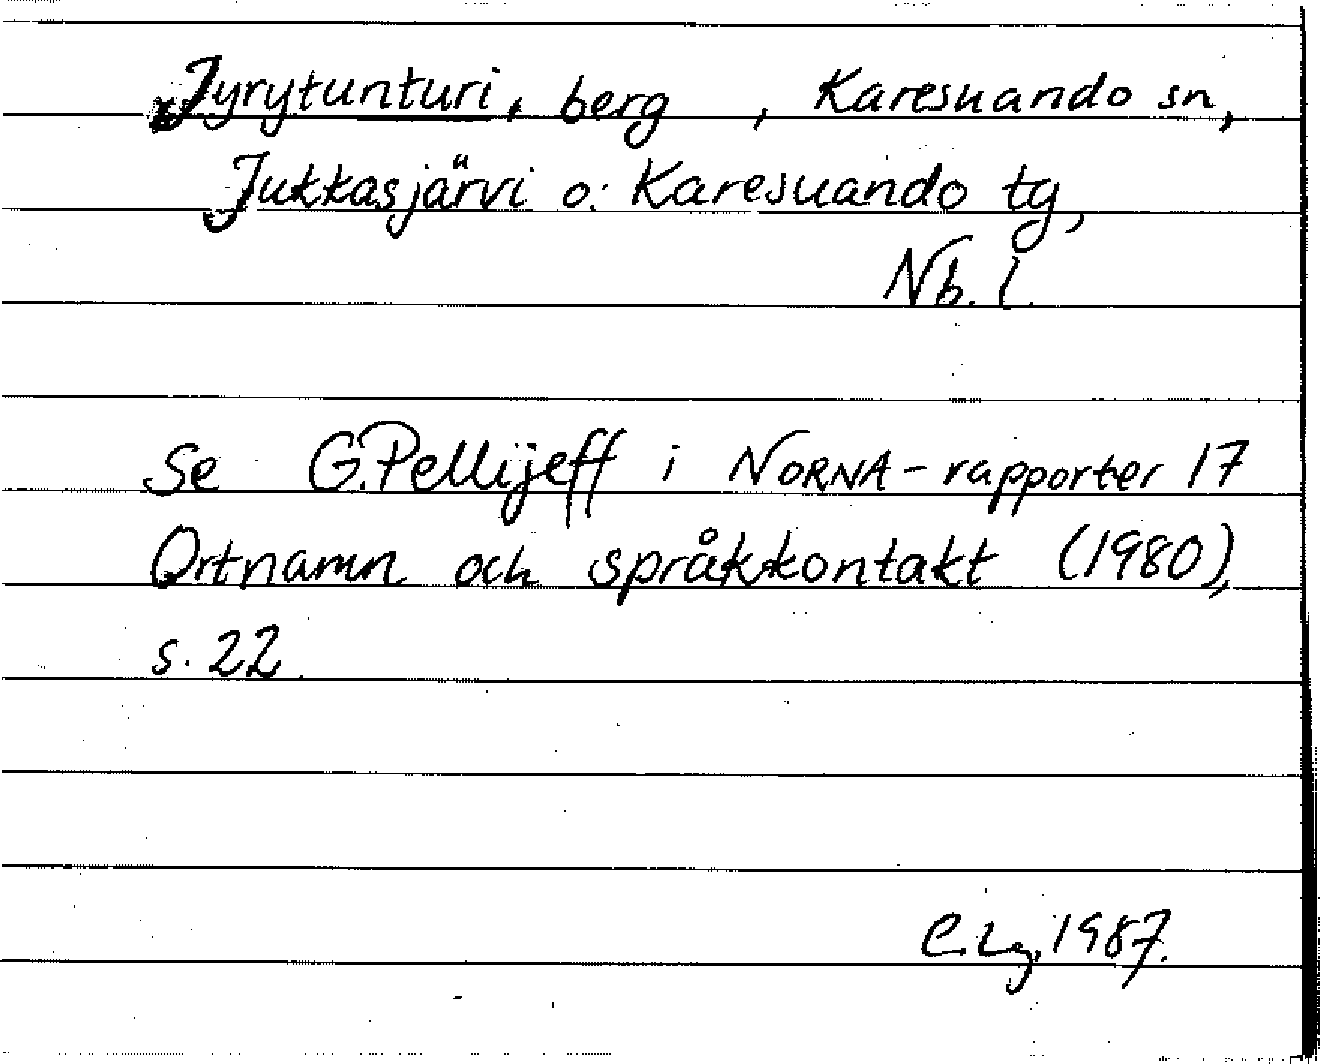 Jyrytunturi, berg, Karesuando sn,
Jukkasjärvi o. Karesuando tg,
Nb. l.
Se G. Pellijeff i NORNA-rapporter 17
Ortnamn och språkkontakt (1980),
s. 22.
C. Lg, 1987.